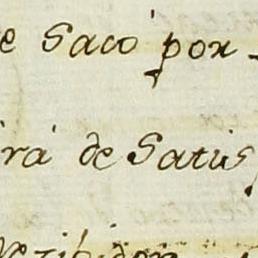 e Sacó por
rá de Satis